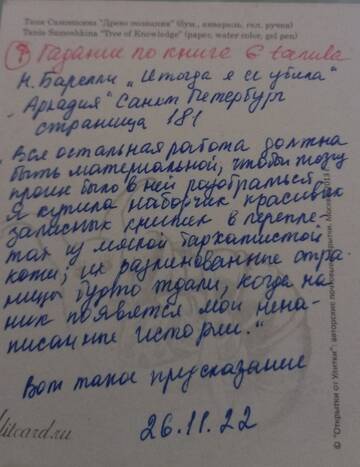 Таня Самошкина "Древо познания" (бум., акварель, гел. ручка)
Tania Samoshkina "Tree of Knowledge" (paper, water color, gel pen)
Гадание по книге
Н. Барелли "И тогда я её убила"
Аркадия" Санкт Петербург
страница 181
"Вся остальная работа должна
быть материальной, чтобы мозгу
проще было в ней разобраться.
Я купила наборчик красивых
записных книжек в перепле-
тах из мягкой бархатистой
кожи; их разлинованные стра-
ницы будто ждали, когда на
них появятся мои нена-
писанные истории."
Вот такое предсказание
26.11.22
litcard.ru
© "Открытки от Улитки": авторские почтовые открытки. Москва, 2013